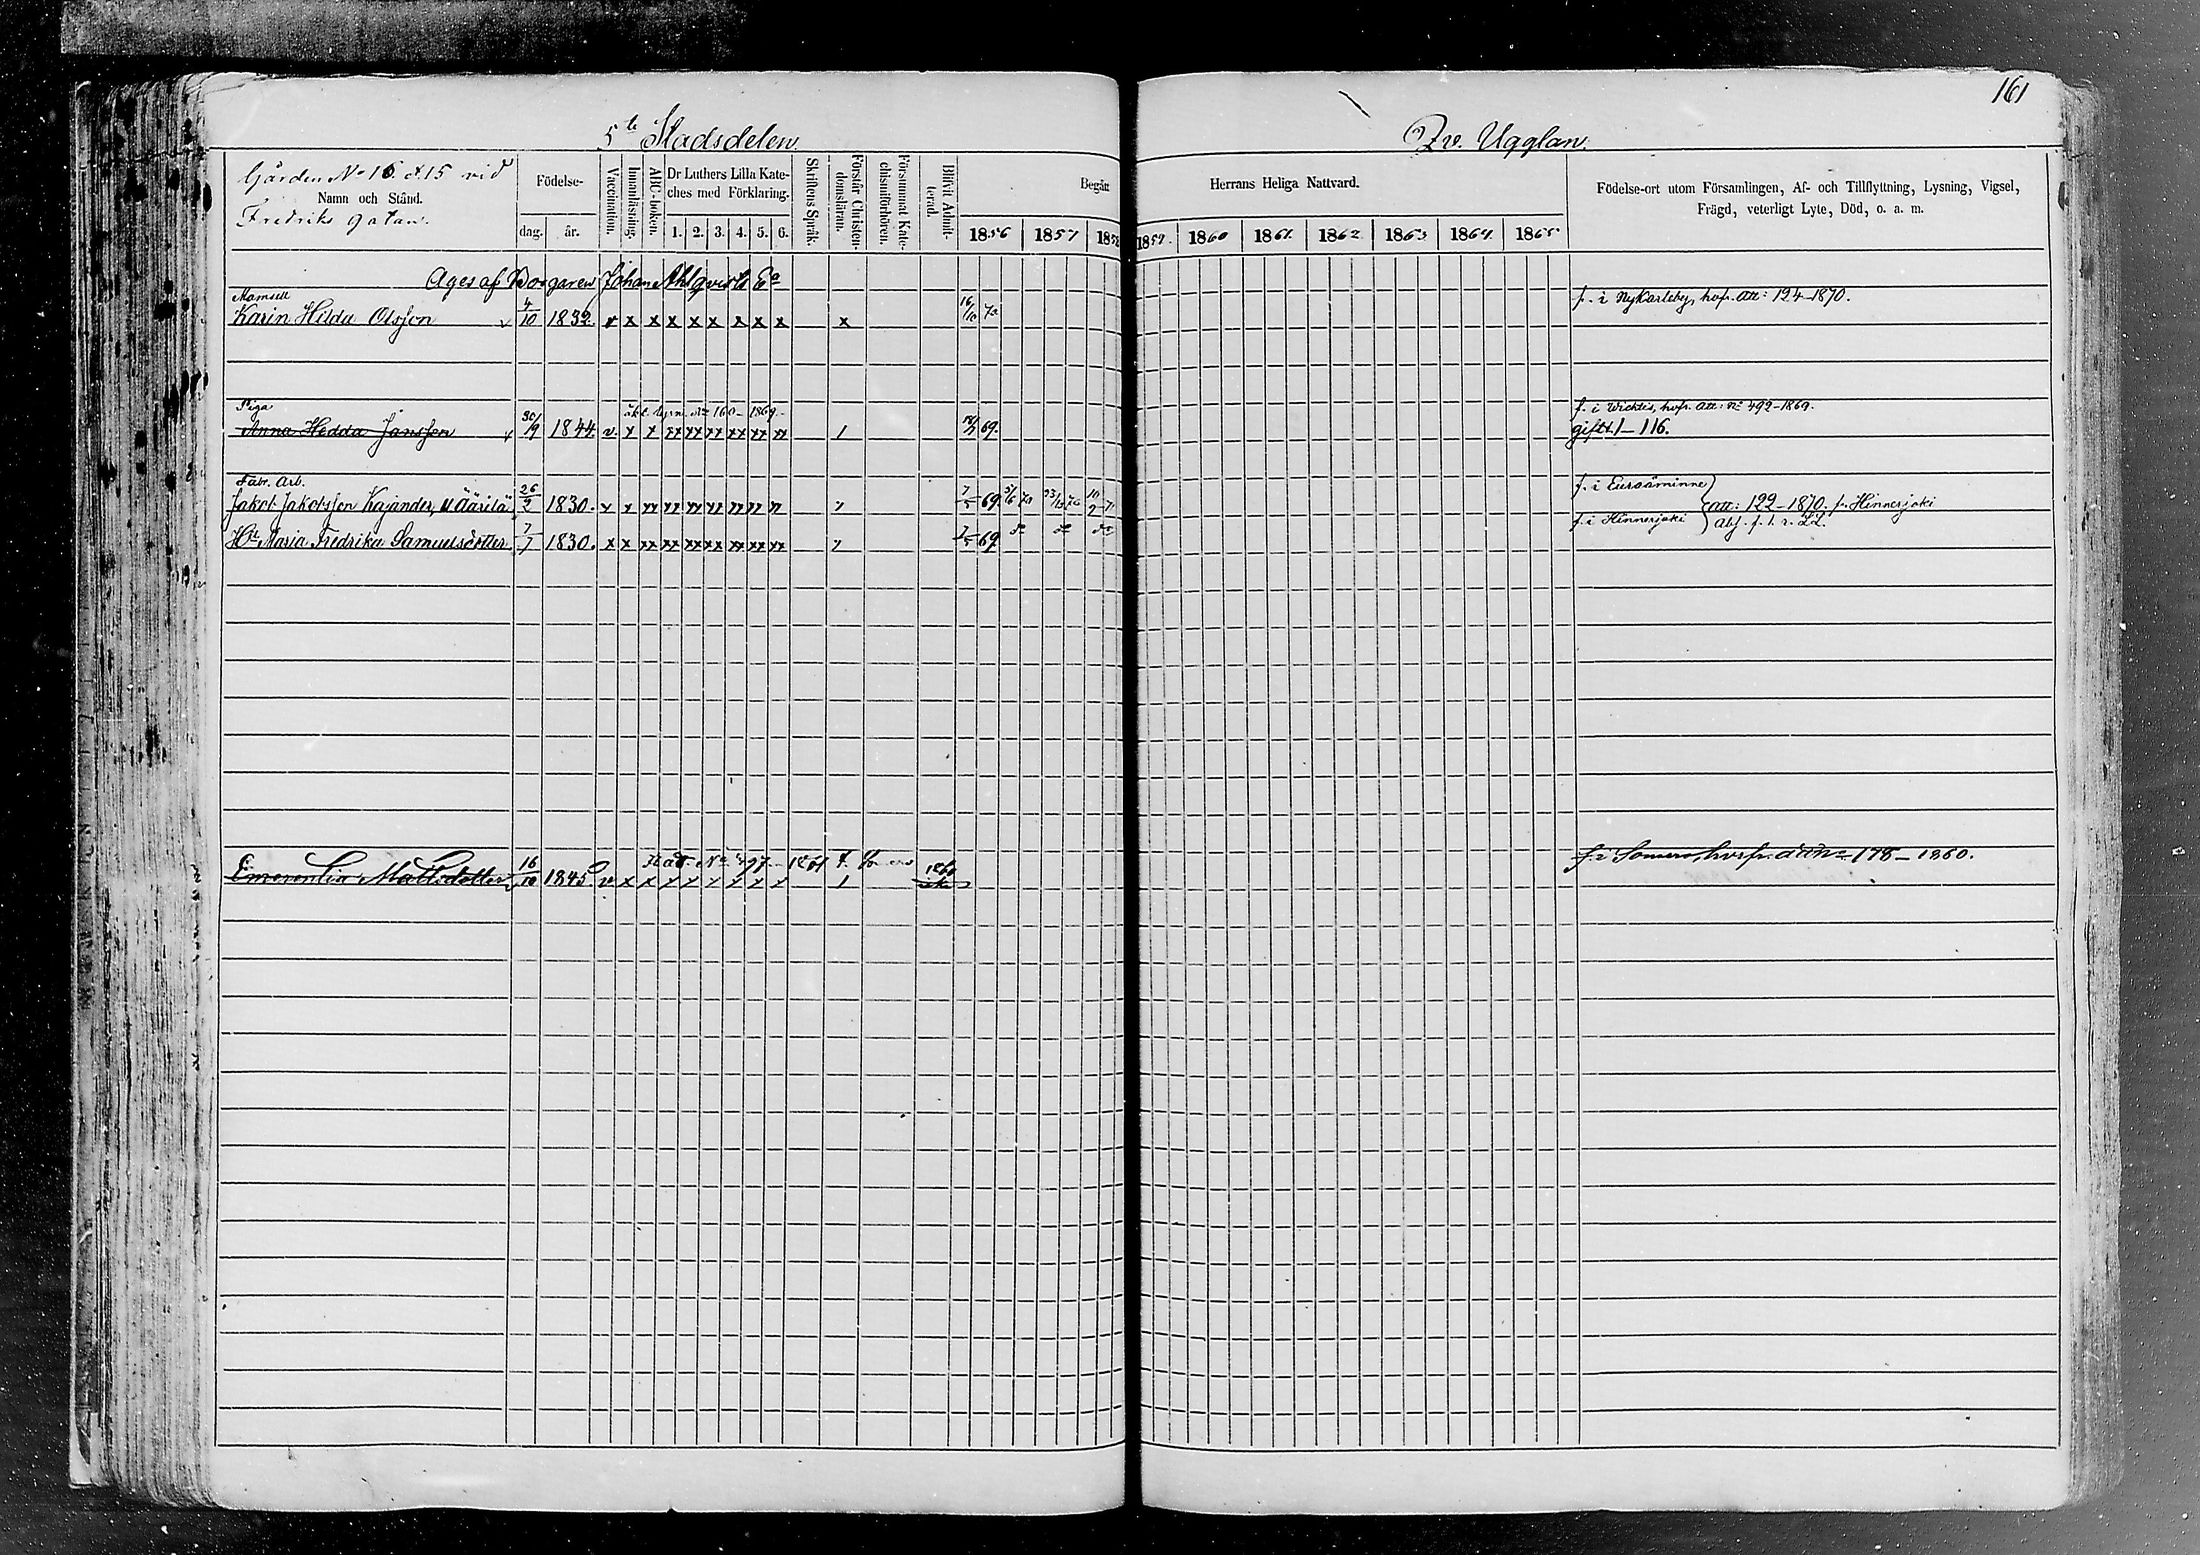 161
5te Stadsdelen.
Qv. Ugglan.
Gården No 16 & 15 vid
Namn och Stånd.
Fredriks gatan.
Födelse-
dag. år.
Vaccination.
Innanläsning.
ABC-boken.
Dr Luthers Lilla Kate-
ches med Förklaring.
1. 2. 3. 4. 5. 6.
Skriftens Språk.
Förstår Christen-
domsläran.
Försummat Kate-
chismiförhören.
Blifvit Admit-
terad.
Begått Herrans Heliga Nattvard.
1856 1857 1858 1859. 1860 1861. 1862 1863 1864. 1865
Födelse-ort utom Församlingen, Af- och Tillflyttning, Lysning, Vigsel,
Frägd, veterligt Lyte, Död, o. a. m.
Äges af Borgaren Johan Ahlqvists Ea
Mamsell
Karin Hilda Olsson 4/10 1832. v x x x x x x x x x 16/10 70
f. i Nykarleby, hofr. att: 124-1870.
Piga
Anna Hedda Jansson 30/9 1844. v. x x xx xx xx xx xx xx 69.
No 160-1869.
f. i Wichtis, hofr. att: No 492-1869.
gift 1-116.
Fabr. Arb.
Jakob Jakobsson Kajander, Ääritä 26/2 1830. 7/5 69. 5/6 70 23/10 70 10/2 71
f. i Euraåminne
att: 122-1870. fr. Hinnerjoki
Hu Maria Fredrika Samuelsdotter 7/7 1830. x x xx xx xx xx xx xx xx 7/5 69. do do do
f. i Hinnerjoki
Emerentia Mattsdotter 16/10 1845. v x x x x x x x x 1860
1861
f. i Somero, hofr. att No 178-1860.